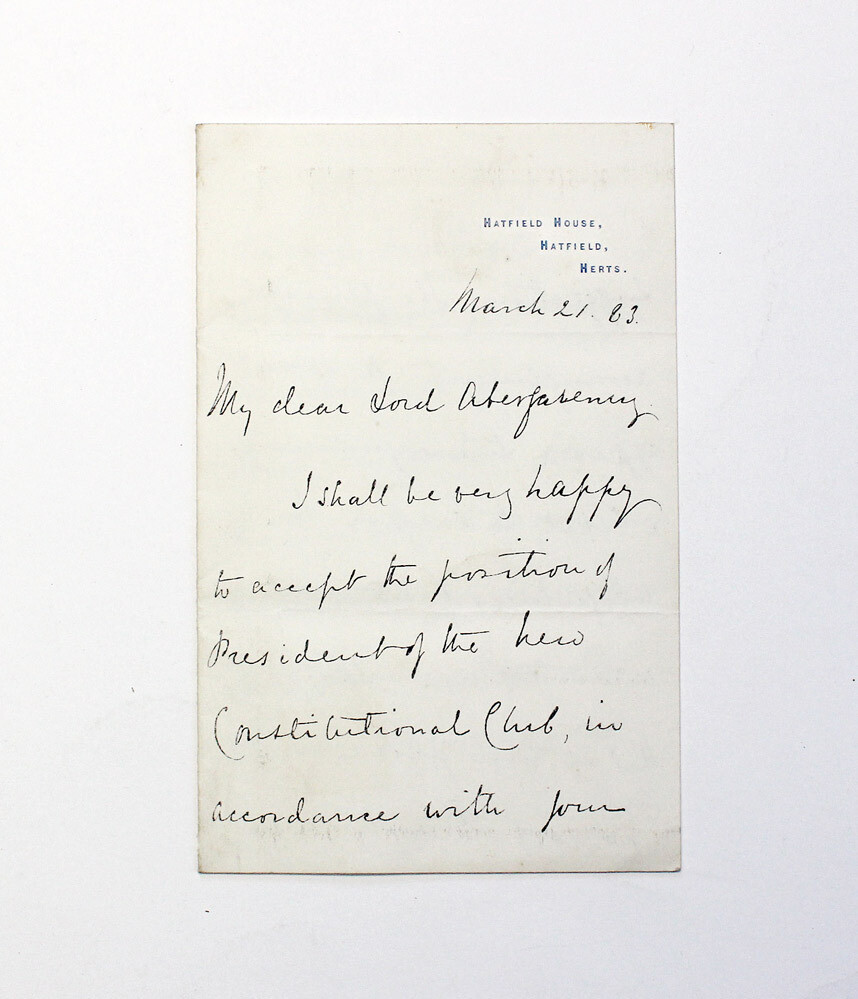 HATFIELD HOUSE,
HATFIELD,
HERTS.
March 21. 83.
My dear Lord Abergavenny
I shall be very happy
to accept the position of
President of the new
Constitutional Club, in
accordance with your